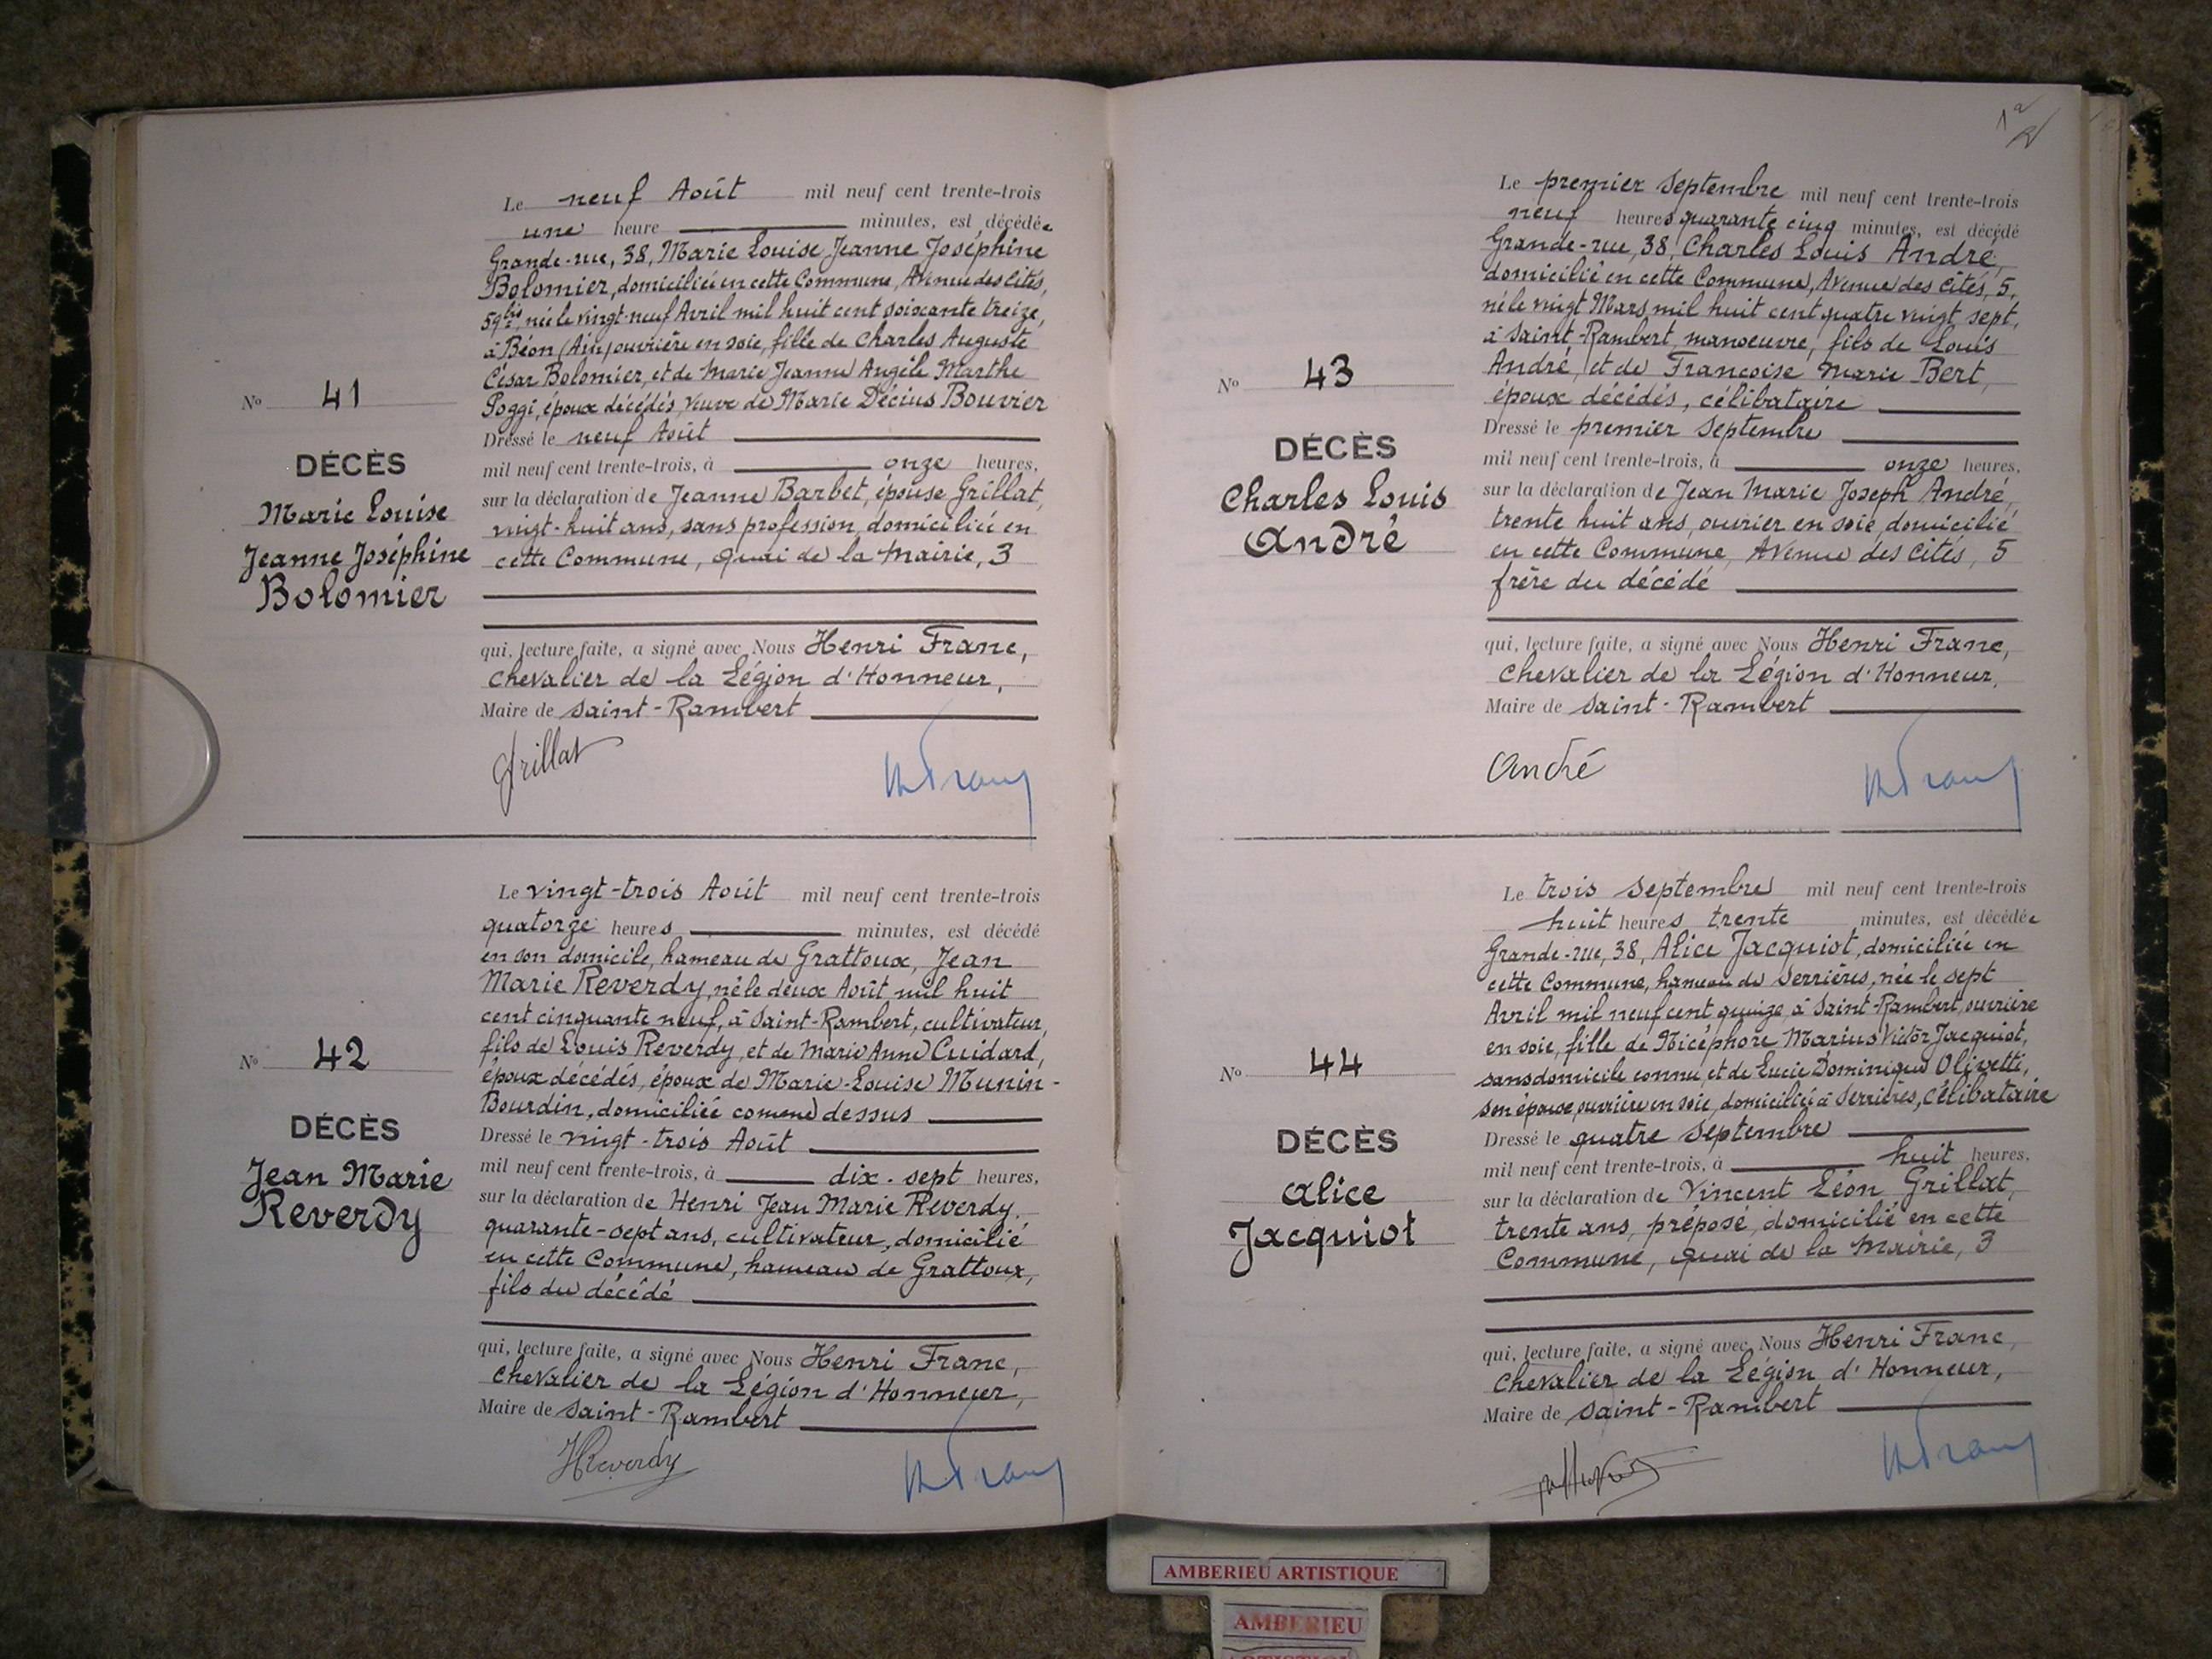 Le neuf Août mil neuf cent trente-trois
une heure minutes, est décédée
Grande-rue, 38, Marie Louise Jeanne Joséphine
Bolomier, domiciliée en cette Commune, Avenue des Cités,
59bis, née le vingt-neuf Avril mil huit cent soixante treize,
à Béon (Ain) ouvrière en soie, fille de Charles Auguste
César Bolomier, et de Marie Jeanne Angèle Marthe
Poggi, époux décédés, veuve de Marie Décius Bouvier
No 41
DÉCÈS
Marie Louise
Jeanne Joséphine
Bolomier
Dressé le neuf Août
mil neuf cent trente-trois, à onze heures,
sur la déclaration de Jeanne Barbet, épouse Grillat,
vingt-huit ans, sans profession, domiciliée en
cette Commune, quai de la Mairie, 3
qui, lecture faite, a signé avec Nous Henri Franc,
Chevalier de la Légion d'Honneur,
Maire de Saint-Rambert
Grillat
HFranc
Le vingt-trois Août mil neuf cent trente-trois
quatorze heures minutes, est décédé
en son domicile, hameau de Grattoux, Jean
Marie Reverdy, né le deux Août mil huit
cent cinquante neuf, à Saint-Rambert, cultivateur,
fils de Louis Reverdy, et de Marie Anne Cuidard,
époux décédés, époux de Marie-Louise Munin-
Bourdin, domiciliée comme dessus
No 42
DÉCÈS
Jean Marie
Reverdy
Dressé le vingt-trois Août
mil neuf cent trente-trois, à dix-sept heures,
sur la déclaration de Henri Jean Marie Reverdy,
quarante-sept ans, cultivateur, domicilié
en cette Commune, hameau de Grattoux,
fils du décédé
qui, lecture faite, a signé avec Nous Henri Franc,
Chevalier de la Légion d'Honneur,
Maire de Saint-Rambert
HReverdy
HFranc
Le premier Septembre mil neuf cent trente-trois
neuf heures quarante cinq minutes, est décédé
Grande-rue, 38, Charles Louis André,
domicilié en cette Commune, Avenue des Cités, 5,
né le vingt Mars mil huit cent quatre vingt sept,
à Saint-Rambert, manoeuvre, fils de Louis
André, et de Françoise Marie Bert,
époux décédés, célibataire
No 43
DÉCÈS
Charles Louis
André
Dressé le premier Septembre
mil neuf cent trente-trois, à onze heures,
sur la déclaration de Jean Marie Joseph André,
trente huit ans, ouvrier en soie, domicilié
en cette Commune, Avenue des Cités, 5
frère du décédé
qui, lecture faite, a signé avec Nous Henri Franc,
Chevalier de la Légion d'Honneur,
Maire de Saint-Rambert
André
HFranc
Le trois Septembre mil neuf cent trente-trois
huit heures trente minutes, est décédée
Grande-rue, 38, Alice Jacquiot, domiciliée en
cette Commune, hameau de Serrières, née le sept
Avril mil neuf cent quinze à Saint-Rambert, ouvrière
en soie, fille de Nicéphore Marius Victor Jacquiot,
sans domicile connu, et de Lucie Dominique Olivetti,
son épouse, ouvrière en soie, domiciliée à Serrières, célibataire
No 44
DÉCÈS
Alice
Jacquiot
Dressé le quatre Septembre
mil neuf cent trente-trois, à huit heures,
sur la déclaration de Vincent Léon Grillat,
trente ans, préposé, domicilié en cette
Commune, quai de la Mairie, 3
qui, lecture faite, a signé avec Nous Henri Franc,
Chevalier de la Légion d'Honneur,
Maire de Saint-Rambert
HFranc
AMBERIEU ARTISTIQUE
AMBERIEU
ARTISTIQUE